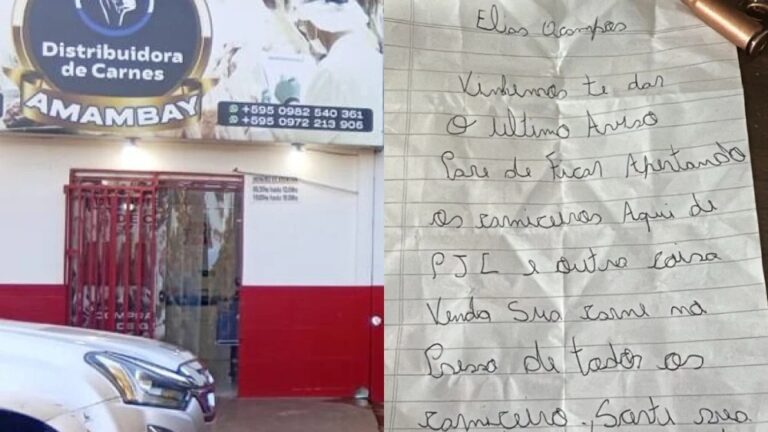 Distribuidora
de Carnes
AMAMBAY
+595 0982 540 361
+595 0972 213 906
COMPRA
Elias Acampos
Vinhemos te das
O Ultimo Aviso
Pare de Ficar Apertando
os carniceiros Aqui de
PJC e outra coisa
Venda Sua carne na
Presso de todos os
carniceiro, sua